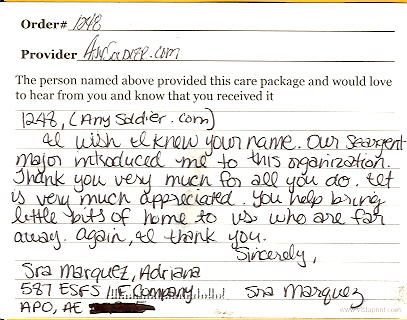 Order# 1248
Provider AnySoldier.com
The person named above provided this care package and would love
to hear from you and know that you received it
1248, (Any Soldier.com)
I wish I knew your name. Our Seargent
major introduced me to this organization.
Thank you very much for all you do. It
is very much appreciated. You help bring
little bits of home to us who are far
away. Again, I thank you.
Sincerely,
Sra Marquez, Adriana
587 ESFS / F Company Sra Marquez
APO, AE
www.vistaprint.com